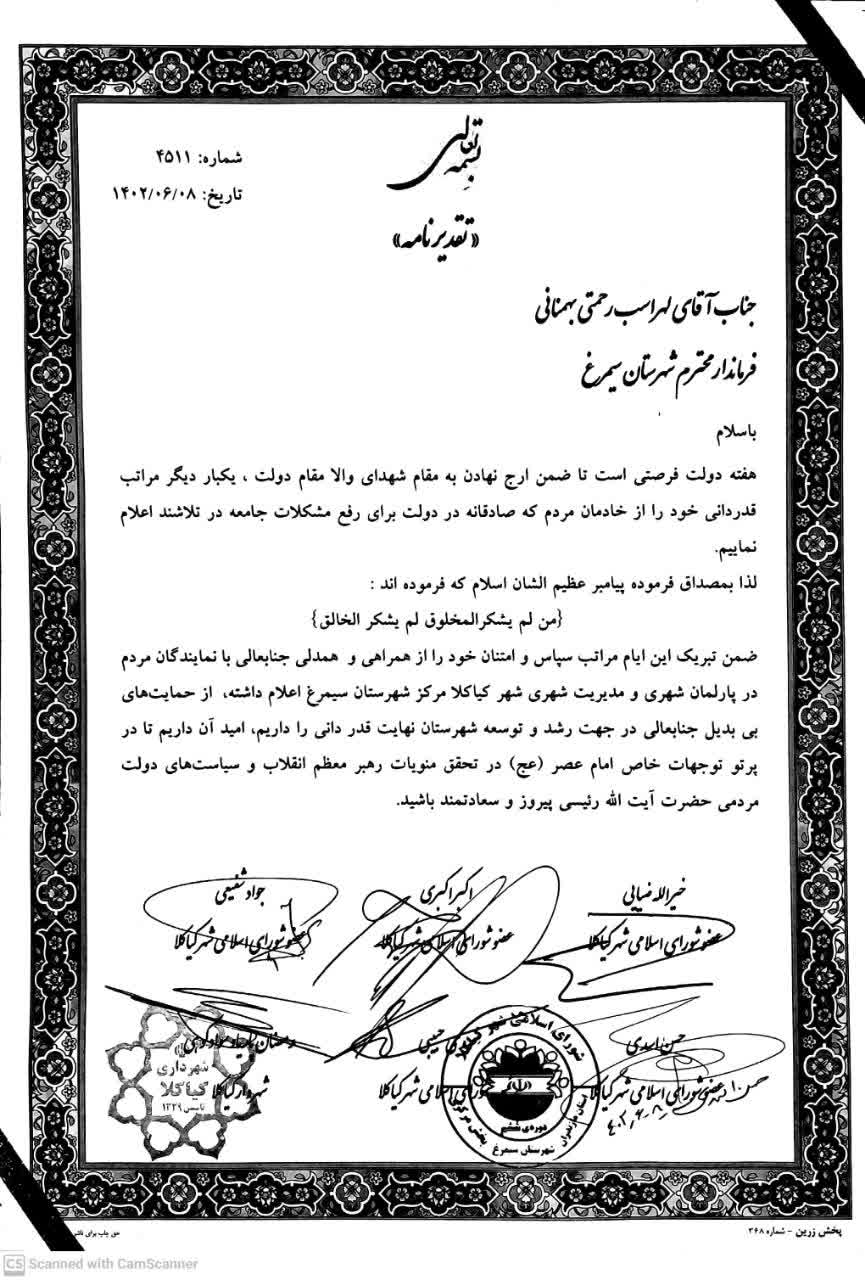 بسمه تعالی
شماره: ۴۵۱۱
تاریخ: ۱۴۰۲/۰۶/۰۸
«تقدیرنامه»
جناب آقای لهراسب رحمتی بهمنانی
فرماندار محترم شهرستان سیمرغ
باسلام
هفته دولت فرصتی است تا ضمن ارج نهادن به مقام شهدای والا مقام دولت ، یکبار دیگر مراتب
قدردانی خود را از خادمان مردم که صادقانه در دولت برای رفع مشکلات جامعه در تلاشند اعلام
نماییم.
لذا بمصداق فرموده پیامبر عظیم الشان اسلام که فرموده اند :
{من لم یشکرالمخلوق لم یشکر الخالق}
ضمن تبریک این ایام مراتب سپاس و امتنان خود را از همراهی و همدلی جنابعالی با نمایندگان مردم
در پارلمان شهری و مدیریت شهری شهر کیاکلا مرکز شهرستان سیمرغ اعلام داشته، از حمایت‌های
بی بدیل جنابعالی در جهت رشد و توسعه شهرستان نهایت قدر دانی را داریم، امید آن داریم تا در
پرتو توجهات خاص امام عصر (عج) در تحقق منویات رهبر معظم انقلاب و سیاست‌های دولت
مردمی حضرت آیت الله رئیسی پیروز و سعادتمند باشید.
خیرالله ضیایی
عضو شورای اسلامی شهر کیاکلا
اکبر اکبری
عضو شورای اسلامی شهر کیاکلا
جواد شفیعی
عضو شورای اسلامی شهر کیاکلا
حسن اسدی
عضو شورای اسلامی شهر کیاکلا
حسینی
شورای اسلامی شهر کیاکلا
شهردار کیاکلا
شورای اسلامی شهر کیاکلا
دوره‌ی ششم
استان مازندران
شهرستان سیمرغ
بخش مرکزی
شهرداری
کیاکلا
تاسیس ۱۳۳۹
پخش زرین - شماره ۳۶۸
حق چاپ برای
CS Scanned with CamScanner